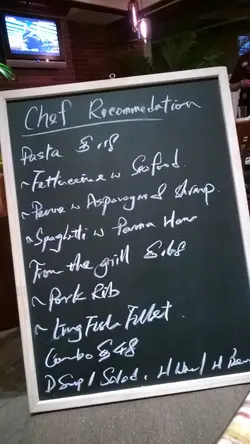 Chef Recommedation
Pasta $18
~ Fettuccine w Seafood.
~ Penne w Asparagus & Shrimp.
~ Spaghtti w Parma Ham
From the grill $168
~ Pork Rib
~ King Fish Fillet.
Combo $48
D Soup / Salad,